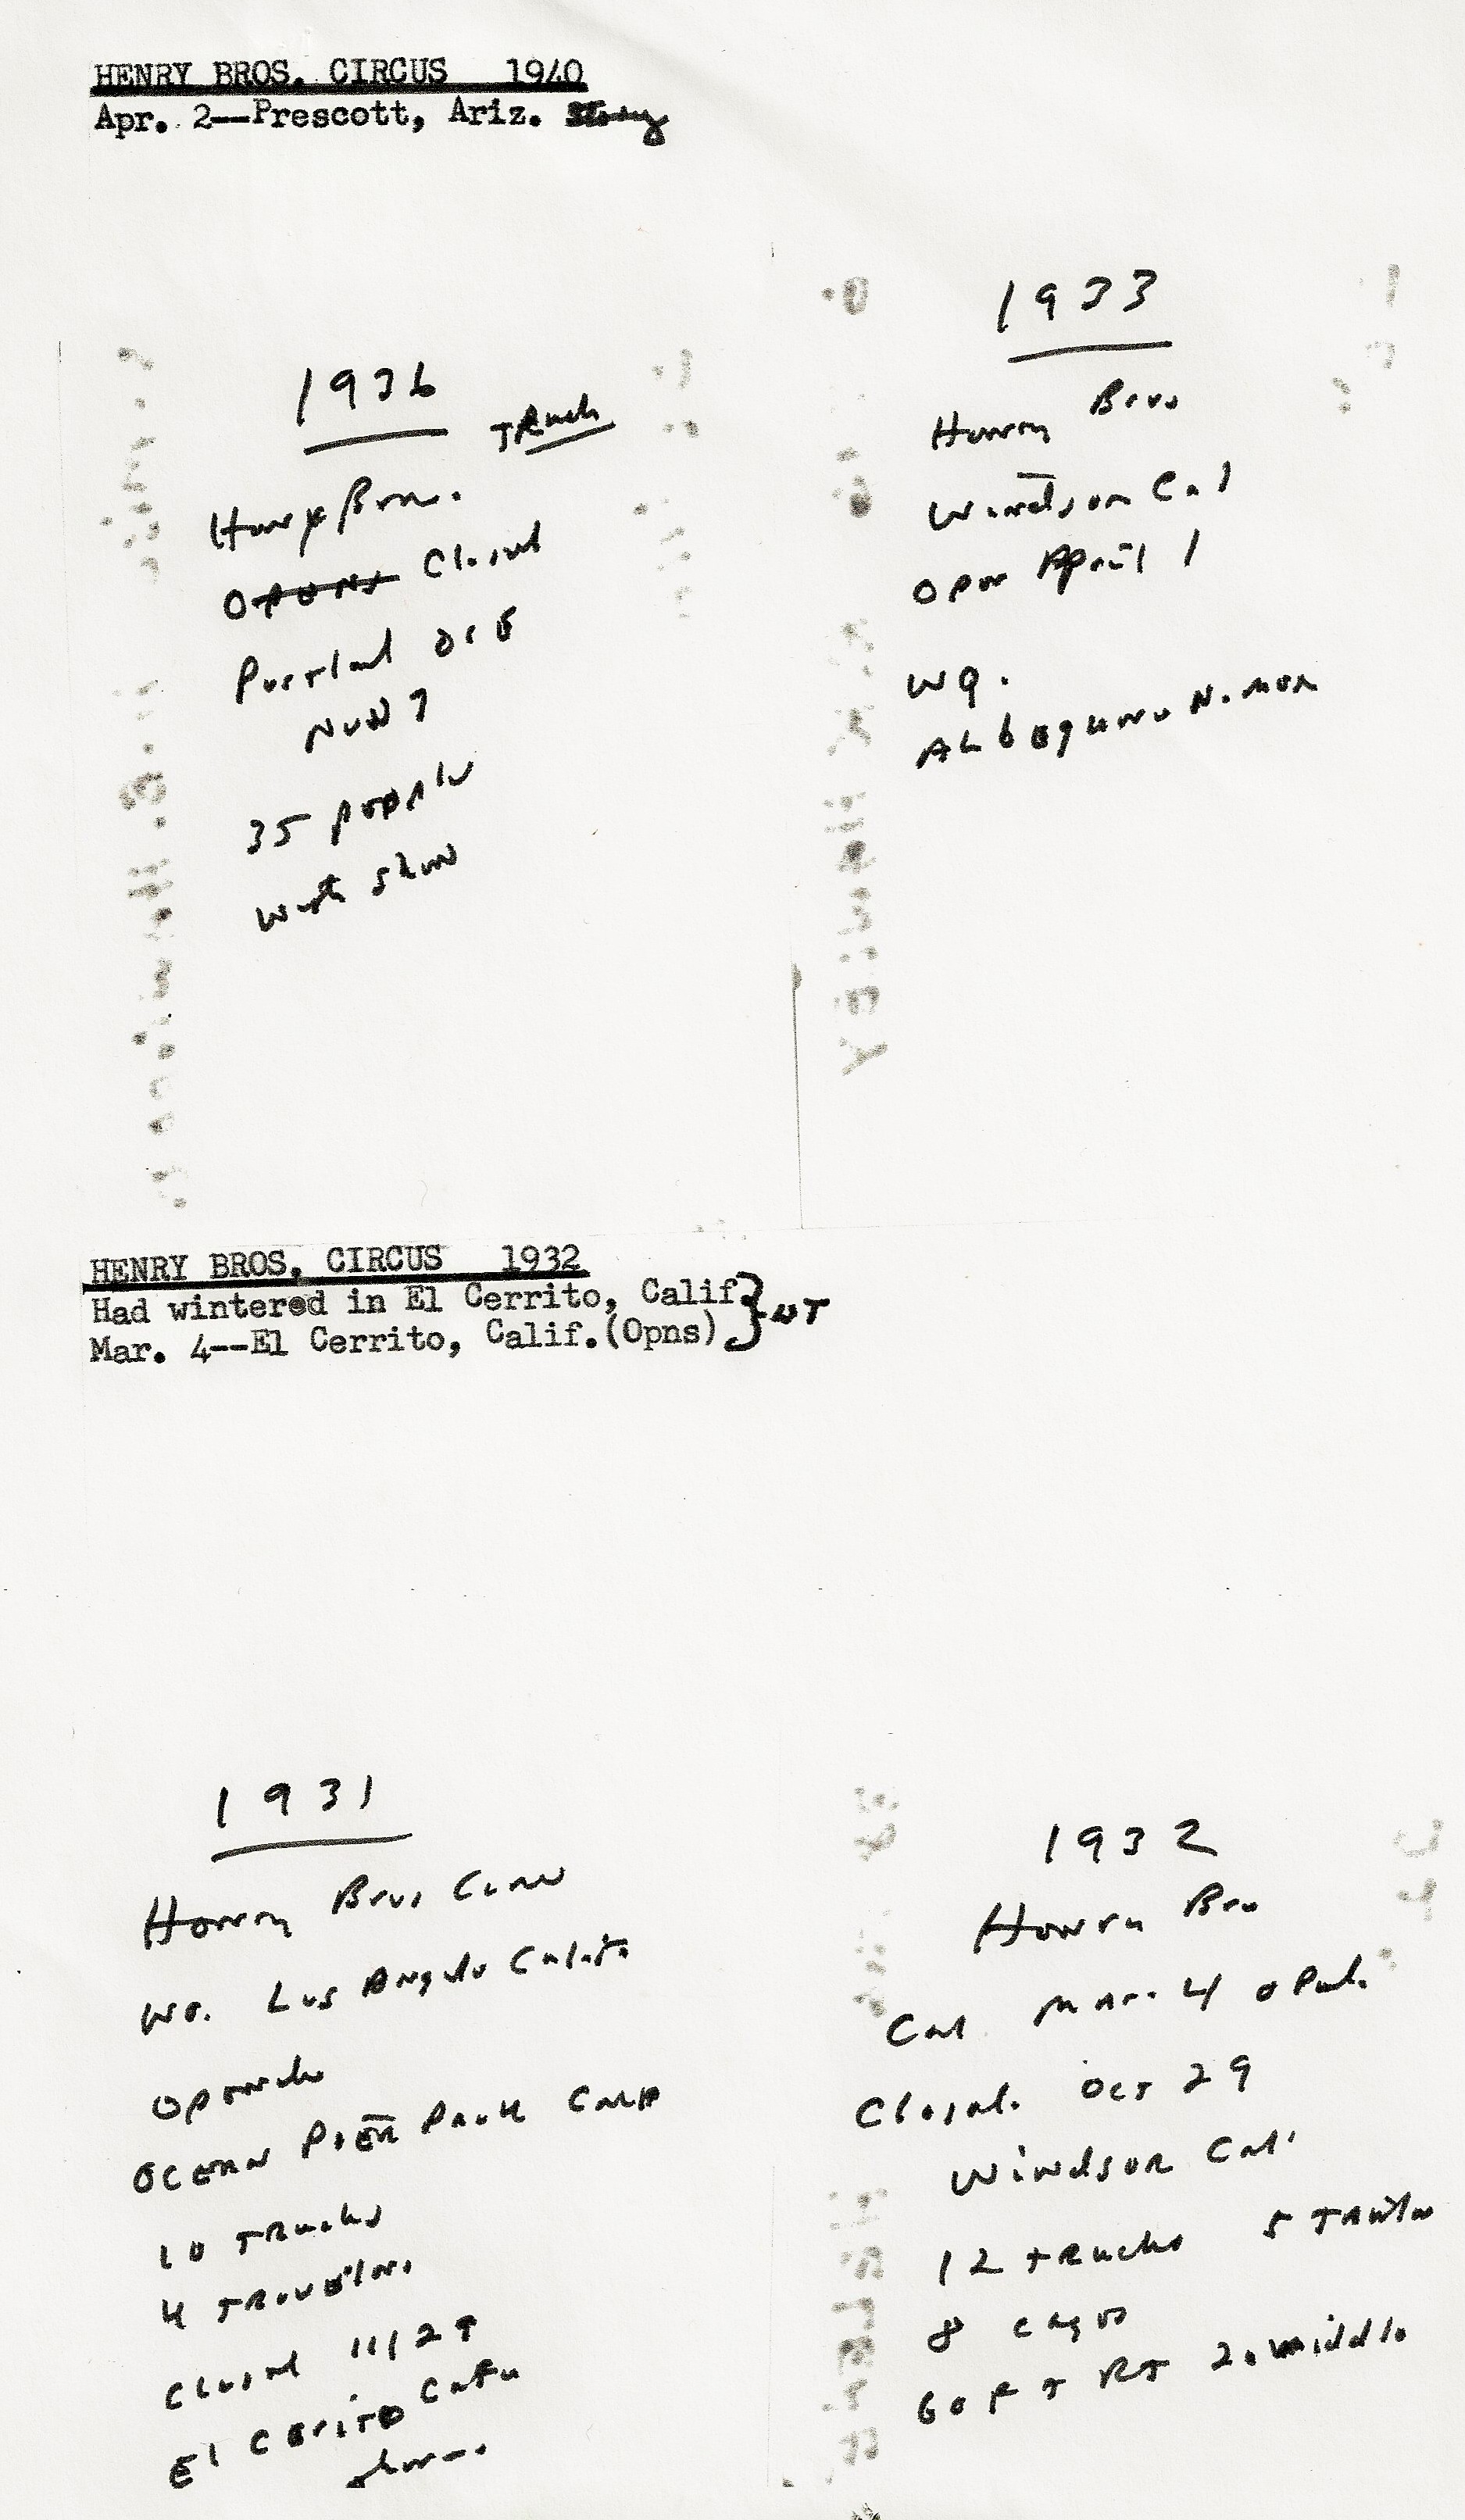 HENRY BROS. CIRCUS 1940
Apr. 2--Prescott, Ariz.
1936
Truck
Henry Bros.
Opens Closed
Portland Ore
Nov 7
35 people
with show
1933
Henry Bros
Windsor Cal
Open April 1
WQ.
Albequerue N. Mex
HENRY BROS. CIRCUS 1932
Had wintered in El Cerrito, Calif
Mar. 4--El Cerrito, Calif.(Opns)
1931
Henry Bros Circus
WQ. Los Angeles Calif
Opened
Ocean Pier Park Calif
10 Trucks
4 Trailers
Closed 11/29
El Cerito Calif
1932
Henry Bro
Cal Mar. 4 opened
Closed. Oct 29
Windsor Cal
12 trucks 5 Trailer
8 cages
60 FT RT 2. middle